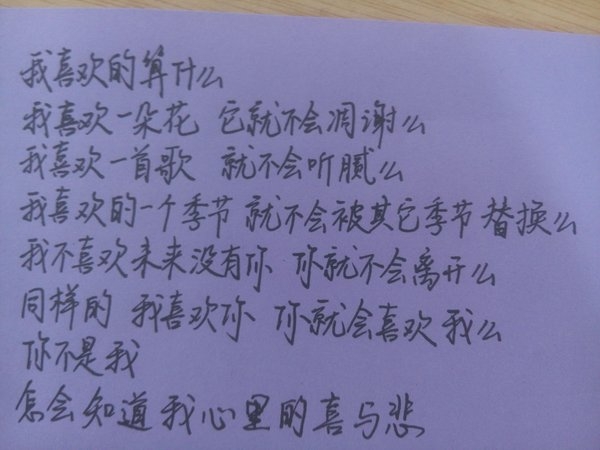 我喜欢的算什么
我喜欢一朵花 它就不会凋谢么
我喜欢一首歌 就不会听腻么
我喜欢的一个季节 就不会被其它季节替换么
我不喜欢未来没有你 你就不会离开么
同样的 我喜欢你 你就会喜欢我么
你不是我
怎会知道我心里的喜与悲